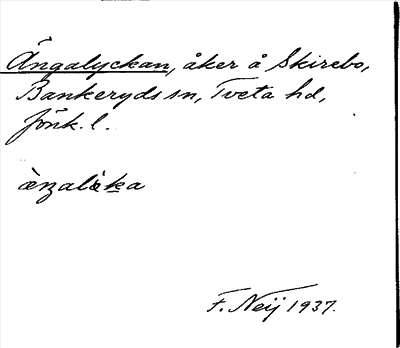 Ängalyckan, åker å Skirebo,
Bankeryds sn, Tveta hd,
Jönk. l.
F. Neij 1937.